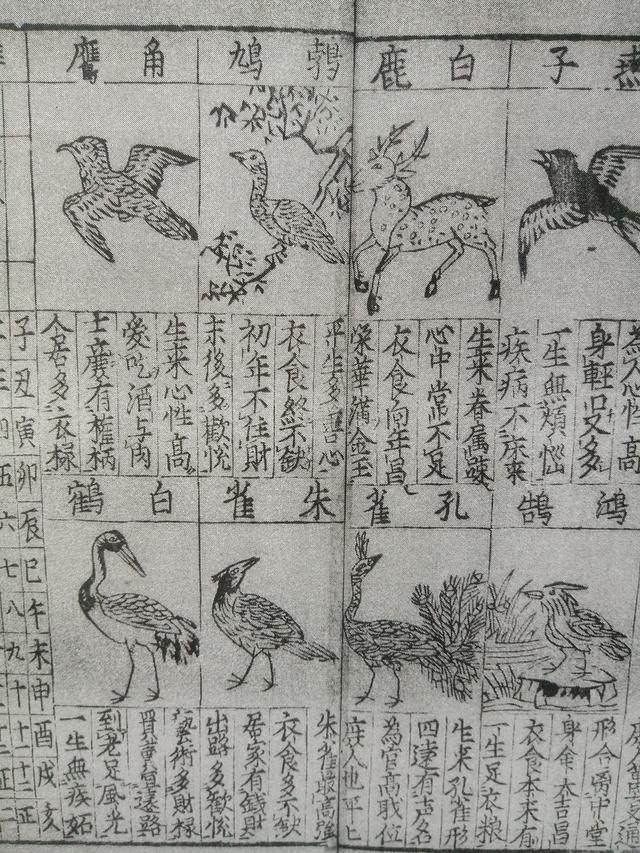 燕子
為人心性高
身輕口又多
一生無煩惱
疾病不床來
白鹿
生來眷属疎
心中常不足
衣食向年昌
榮華滿金玉
鵓鳩
平生多善心
衣食終不缺
初年不住財
末後多歡悅
角鷹
生來心性高
愛吃酒与肉
士庻有權柄
令居多衣祿
鴻鵠
形合畫中堂
身命本吉昌
衣食本來有
一生足衣粮
孔雀
生來孔雀形
四遠有声名
為官高職位
庶人也平上
朱雀
朱雀最高強
衣食多不缺
居家有錢財
出路多歡悅
白鶴
藝術多財祿
買賣宜遠路
到老足風光
一生無疾妬
子丑寅卯辰巳午未申酉戌亥
五六七八九十十一十二正二